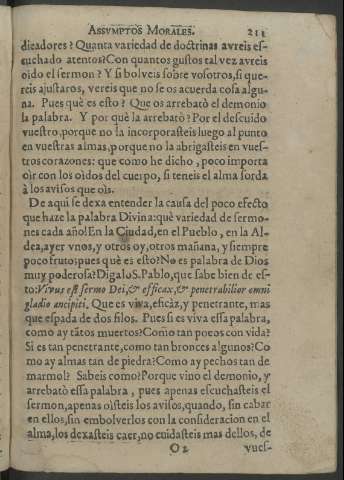 ASSVMPTOS MORALES. 211
dicadores? Quanta variedad de doctrinas avreis es-
cuchado atentos? Con quantos gustos tal vez avreis
oido el sermon? Y si bolveis sobre vosotros, si que-
reis ajustaros, vereis que no se os acuerda cosa algu-
na. Pues què es esto? Que os arrebatò el demonio
la palabra. Y por què la arrebatò? Por el descuido
vuestro, porque no la incorporasteis luego al punto
en vuestras almas, porque no la abrigasteis en vues-
tros corazones: que como he dicho, poco importa
oìr con los oìdos del cuerpo, si teneis el alma sorda
à los avisos que oìs.
De aqui se dexa entender la causa del poco efecto
que haze la palabra Divina: què variedad de sermo-
nes cada año! En la Ciudad, en el Pueblo, en la Al-
dea, ayer vnos, y otros oy, otros mañana, y siempre
poco fruto: pues què es esto? No es palabra de Dios
muy poderosa? Digalo S. Pablo, que sabe bien de es-
to: Vivus est sermo Dei, & efficax, & penetrabilior omni
gladio ancipiti. Que es viva, eficàz, y penetrante, mas
que espada de dos filos. Pues si es viva essa palabra,
como ay tãtos muertos? Como tan pocos con vida?
Si es tan penetrante, como tan bronces algunos? Co
mo ay almas tan de piedra? Como ay pechos tan de
marmol? Sabeis como? Porque vino el demonio, y
arrebatò essa palabra, pues apenas escuchasteis el
sermon, apenas oìsteis los avisos, quando, sin cabar
en ellos, sin embolverlos con la consideracion en el
alma, los dexasteis caer, no cuidasteis mas dellos, de
O2 vues-